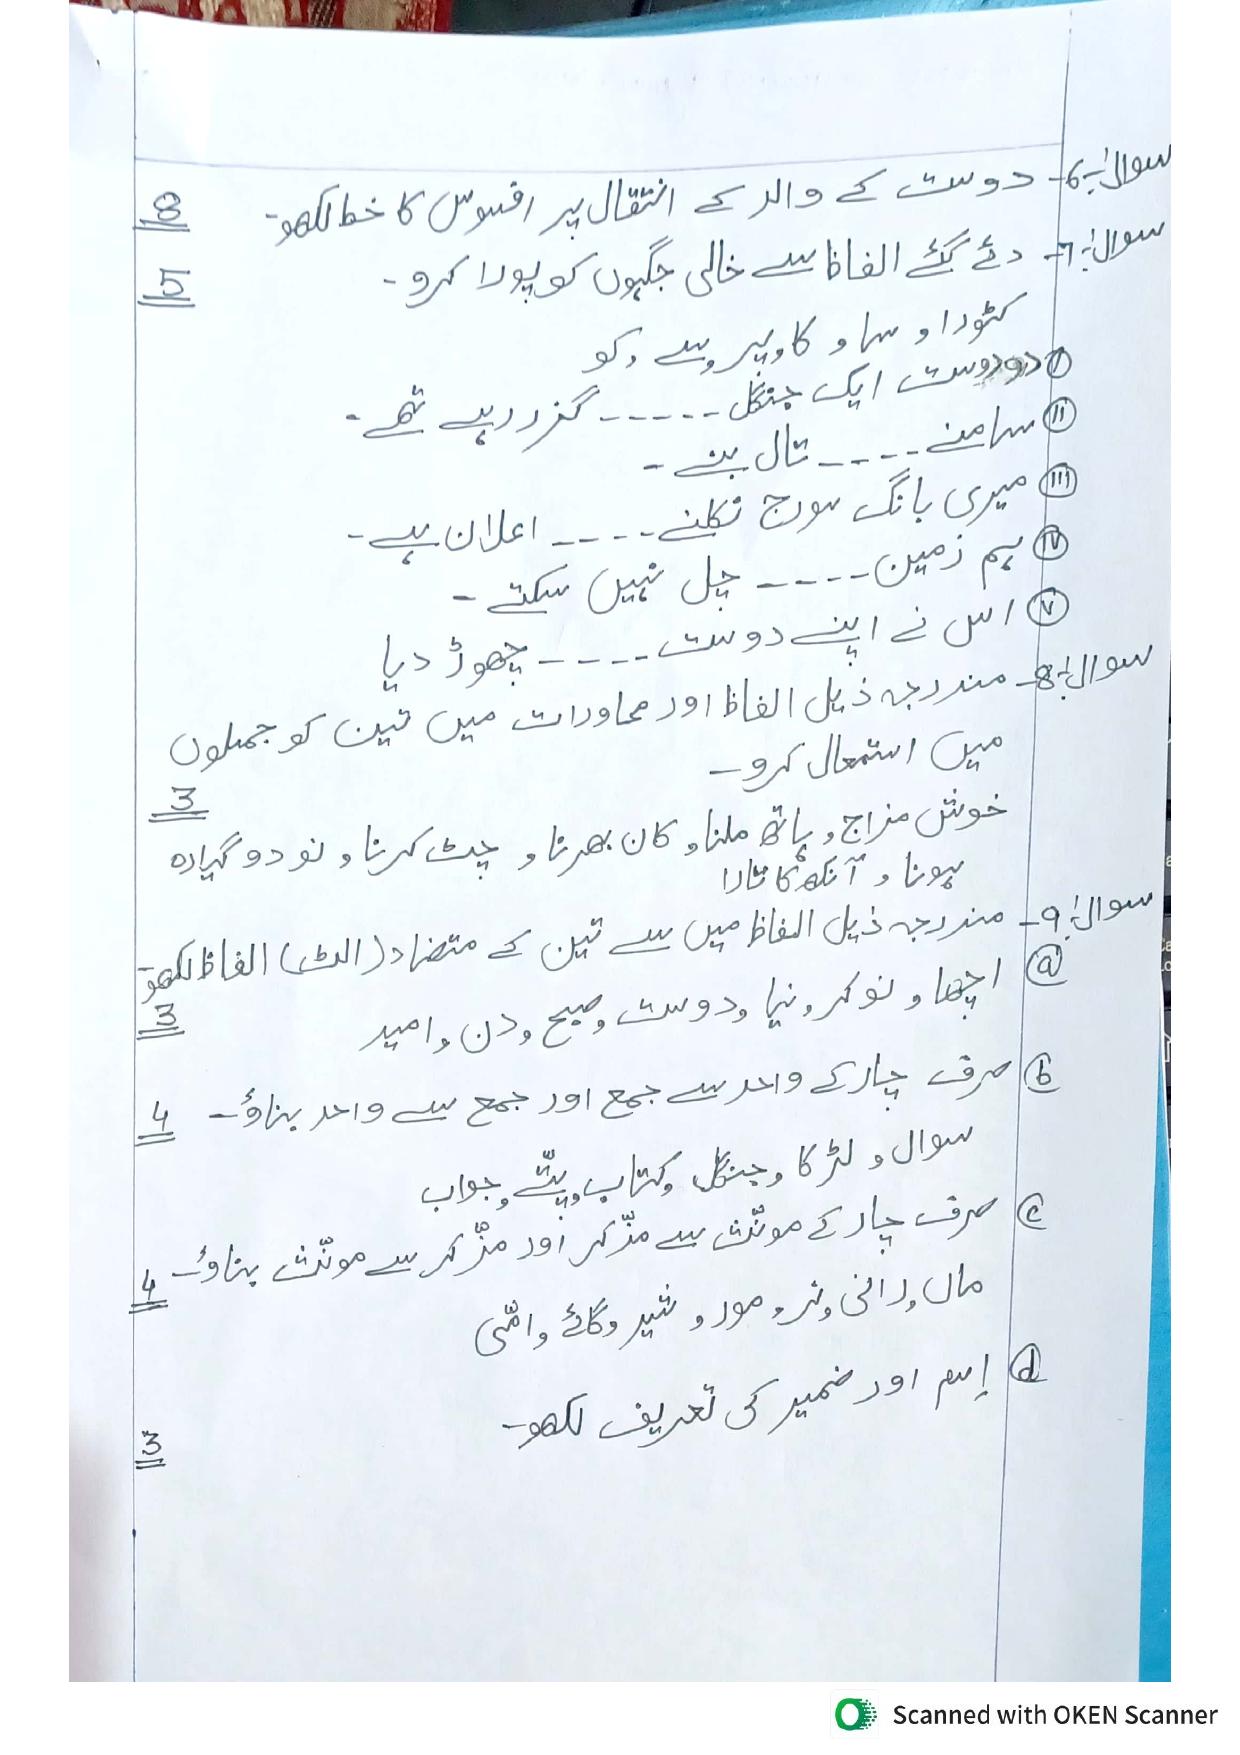 سوال:-6- دوست کے والد کے انتقال پر افسوس کا خط لکھو- 8
سوال:-7- دئے گئے الفاظ سے خالی جگہوں کو پورا کرو- 5
کٹورا، سا، کا، پر، سے، کو
(i) دو دوست ایک جنگل ----- گزر رہے تھے-
(ii) سامنے ---- تال بنے-
(iii) میری بانگ سورج نکلنے ---- اعلان ہے-
(iv) ہم زمین ---- چل نہیں سکتے-
(v) اس نے اپنے دوست ---- چھوڑ دیا
سوال:-8- مندرجہ ذیل الفاظ اور محاورات میں تین کو جملوں
میں استعمال کرو- 3
خوش مزاج، ہاتھ ملنا، کان بھرنا، چٹ کرنا، نو دو گیارہ
ہونا، آنکھ کا تارا
سوال:-9- مندرجہ ذیل الفاظ میں سے تین کے متضاد (الٹے) الفاظ لکھو-
(a) اچھا، نوکر، نیا، دوست، صبح، دن، امید 3
(b) صرف چار کے واحد سے جمع اور جمع سے واحد بناؤ- 4
سوال، لڑکا، جنگل، کتاب، پتّے، جواب
(c) صرف چار کے مونّث سے مذّکر اور مذّکر سے مونّث بناؤ- 4
ماں، رانی، نر، مور، شیر، گائے، امّی
(d) اِسم اور ضمیر کی تعریف لکھو-
3
Scanned with OKEN Scanner